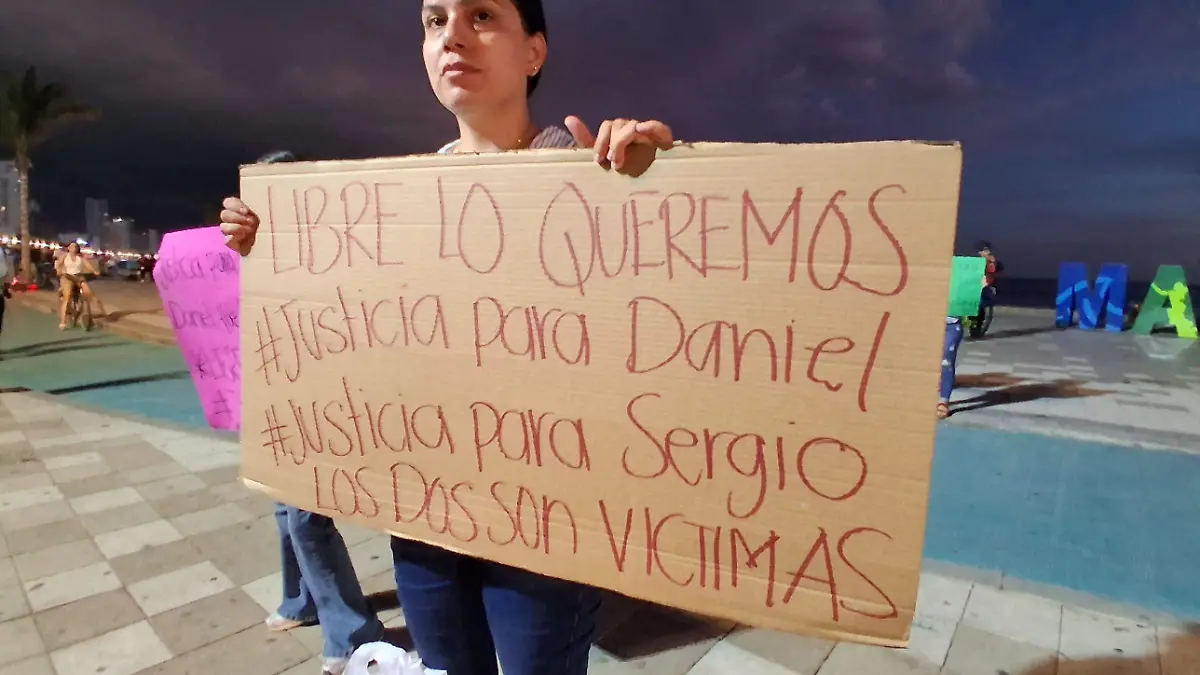 LIBRE LO QUEREMOS
#Justicia para Daniel
#Justicia para Sergio
LOS DOS SON VICTIMAS
MA